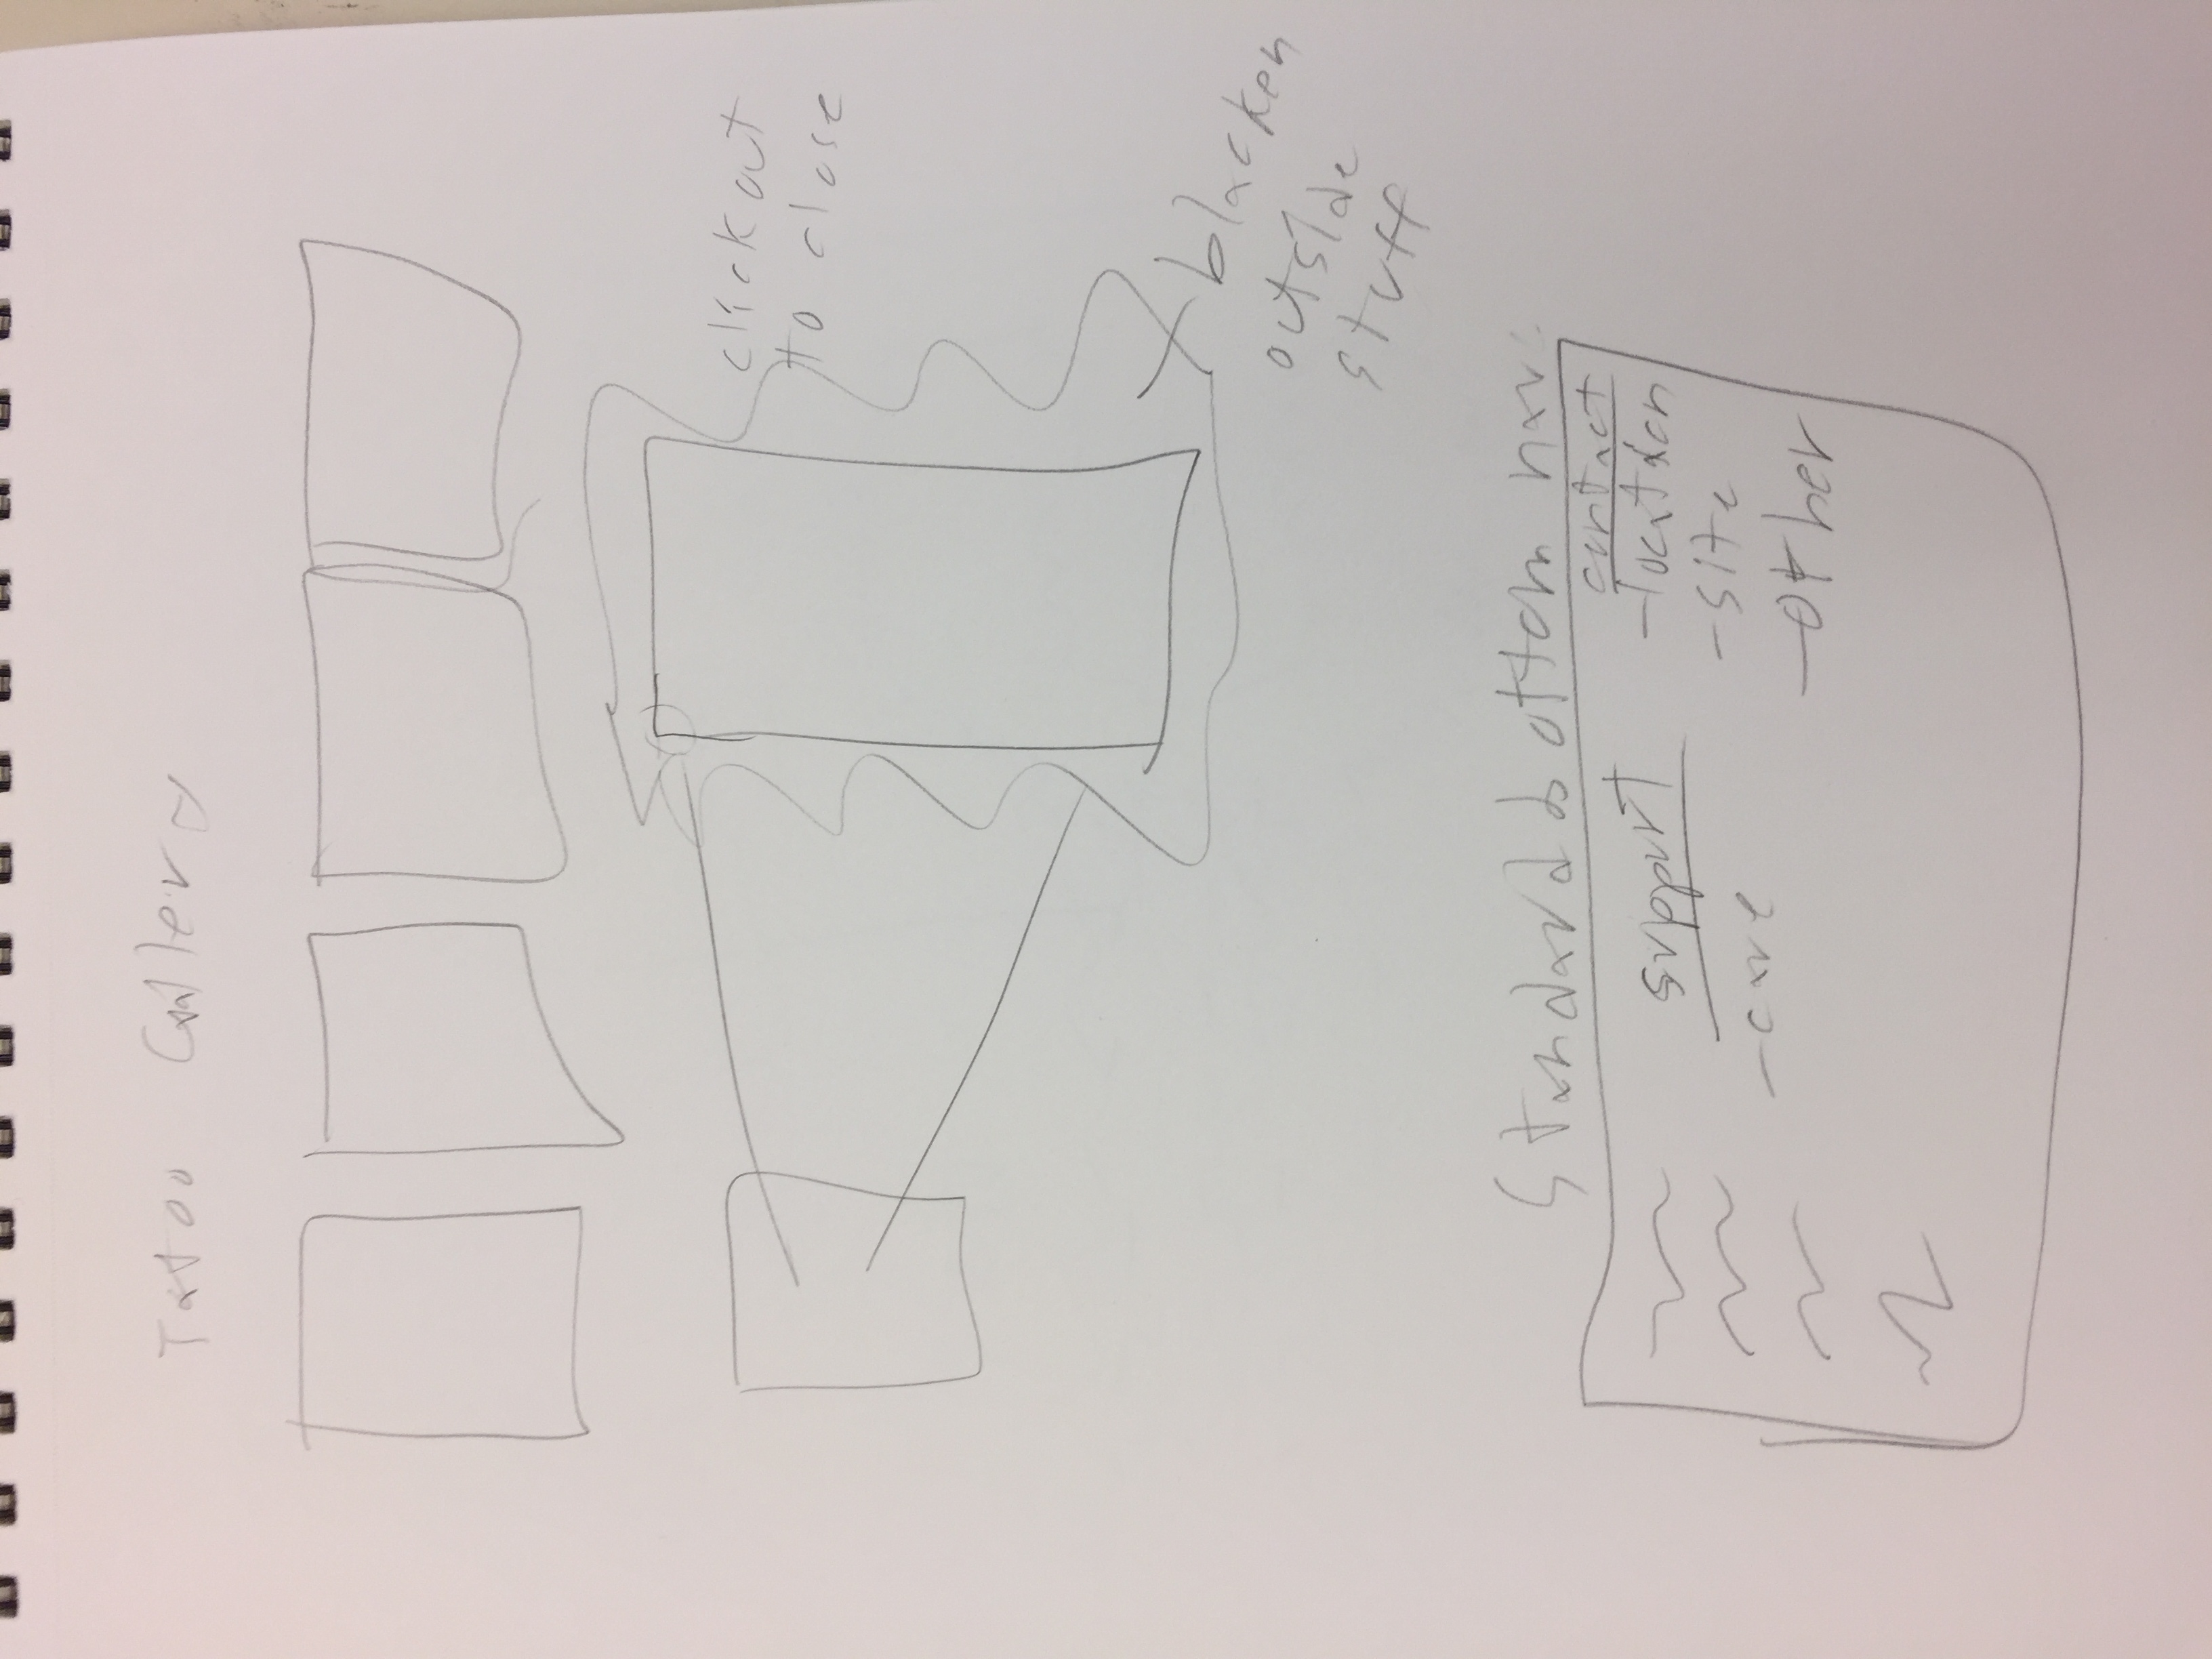 Tatoo Gallery
click out
to close
blacken
outside
stuff
Standard bottom nav
support
-care
contact
-location
-site
-Other